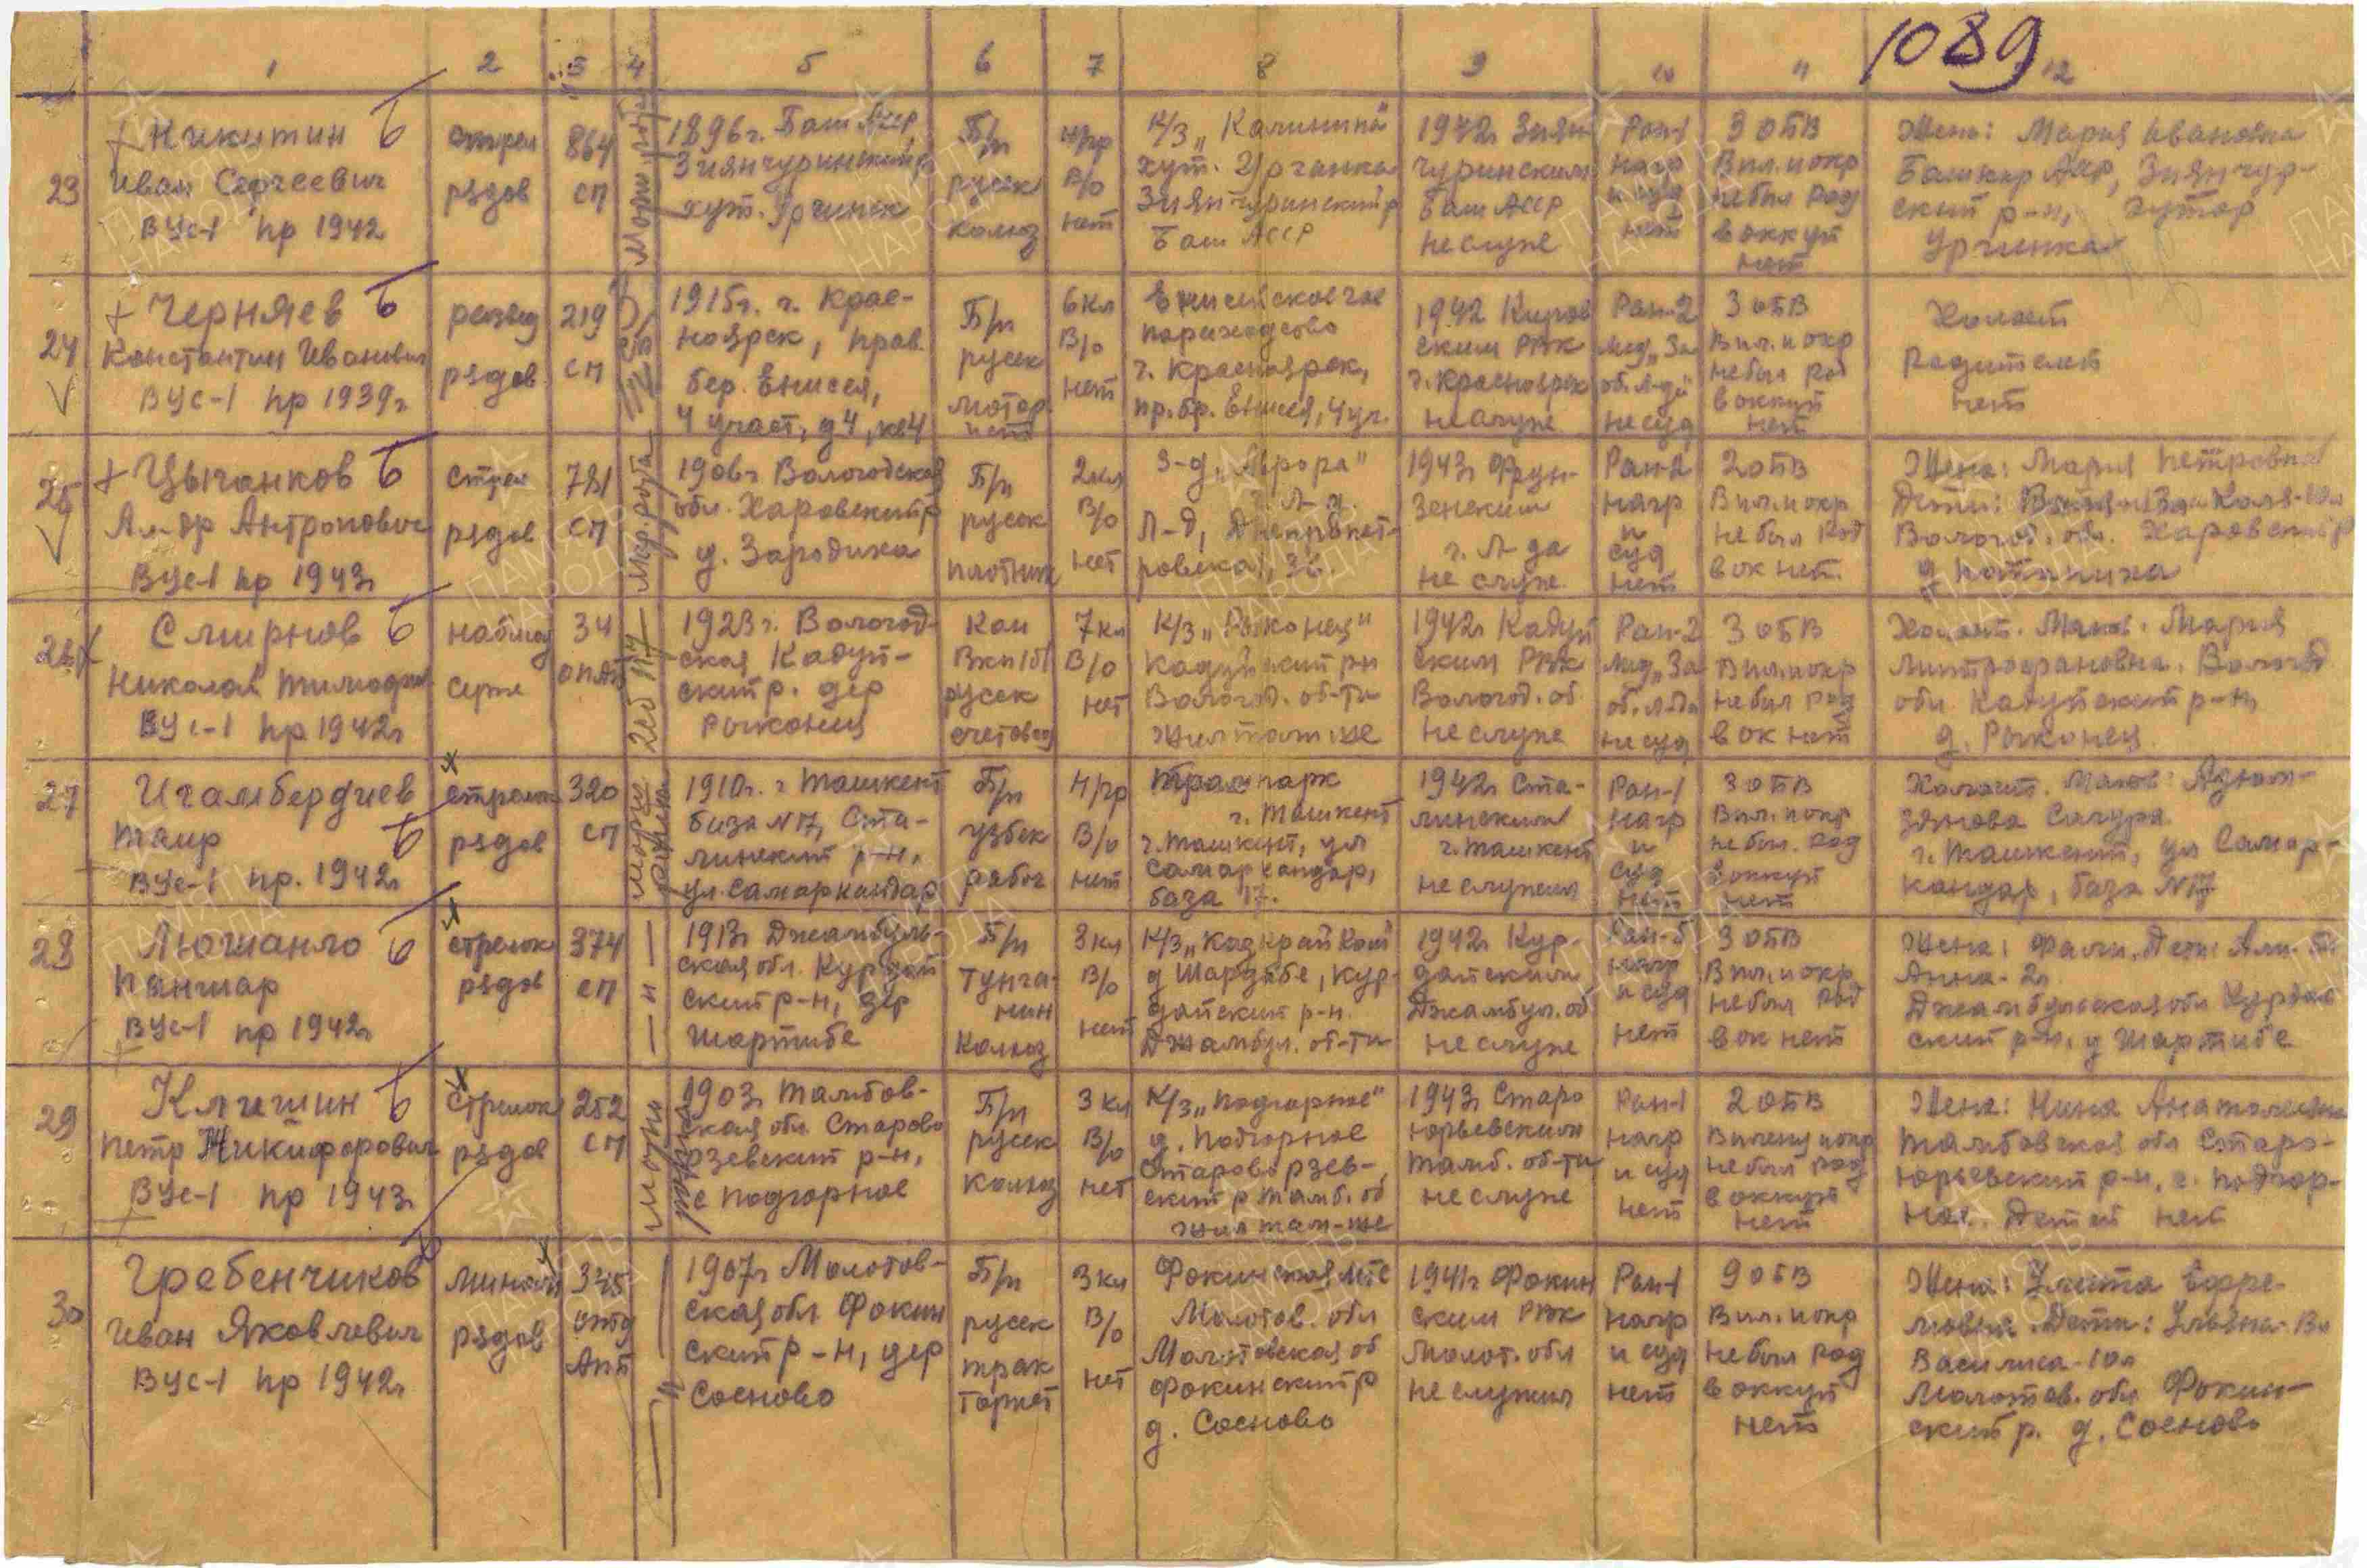 1089
1 2 3 4 5 6 7 8 9 10 11 12
23
+ Никитин Б
Иван Сергеевич
ВУс-1 пр 1942
стрел
рядов
864
сп
1896г. Баш АССР
Зиянчуринский р
хут. Ургинск
Б/п
русск
колхоз
н/гр
в/о
нет
К/з „Калинина"
хут. Ургинка
Зиянчуринский р
Баш АССР
1942г Зиян
чуринским
Баш АССР
не служ
Ран-1
нагр
и суд
нет
3 ОПВ
В пл. и окр
не был Род
в оккуп
нет
Жена: Мария Ивановна
Башкир АССР, Зиянчур-
ский р-н, хутор
Ургинка
24
+ Черняев Б
Константин Иванович
ВУс-1 пр 1939г
развед
рядов
219
сп
1915г. г. Крас-
ноярск, прав.
бер. Енисея,
4 участ, д 4, кв 4
Б/п
русск
мотор
ист
6 кл
в/о
нет
Енисейское гос
пароходство
г. Красноярск,
пр. бр. Енисея, 4 уч.
1942 Киров
ским РВК
г. Красноярск
не служ
Ран-2
мед „За
об. Л-да"
не суд
3 ОПВ
В пл. и окр
не был род
в оккуп
нет
Холост
Родителей
нет
25
+ Цыганков Б
Ал-др Антропович
ВУс-1 пр 1943г
стрел
рядов
781
сп
1906г Вологодская
обл. Харовский р
д.
Б/п
русск
плотник
2 кл
в/о
нет
з-д „Аврора"
г. Л-д
Л-д, Днепропет-
ровская,
1943г Фрун-
зенским
г. Л-да
не служ.
Ран-2
нагр
и
суд
нет
2 ОПВ
В пл. и окр
не был Род
в ок нет.
Жена: Мария Петровна
Дети: Коля-10л
Вологод. обл. Харовский р
26
Смирнов Б
Николай
ВУс-1 пр 1942г
наблюд
серж
34
1923г. Вологод-
ская Кадуй-
ский р. дер
Рыконец
Кан
ВКП/б/
русск
счетовод
7 кл
в/о
нет
К/з „Рыконец"
Кадуйский рн
Вологод. об-ти
жил там же
1942г Кадуй
ским РВК
Вологод. об.
не служ
Ран-2
мед „За
об. Л-да
не суд
3 ОПВ
В пл. и окр
не был род
в ок нет
Холост. Мать: Мария
Митрофановна. Вологод
обл Кадуйский р-н,
д. Рыконец
27
Игамбердиев
Таир Б
ВУс-1 пр. 1942г
стрелок
рядов
320
сп
1910г. г Ташкент
база N17, Ста-
линский р-н,
ул. Самаркандар
Б/п
узбек
рабоч
н/гр
в/о
нет
Трампарк
г. Ташкент
г. Ташкент, ул
Самаркандар,
база 17.
1942г Ста-
линским
г. Ташкент
не служил
Ран-1
нагр
и
суд
нет
3 ОПВ
В пл. и окр
не был. род
в оккуп
нет
Холост. Мать:
г. Ташкент, ул Самар-
кандар, база N17
28
Люшанло Б
Паншар
ВУс-1 пр 1942г
стрелок
рядов
374
сп
— " —
1913г Джамбуль-
ская обл. Курдай
ский р-н, дер
Шортибе
Б/п
Тунга-
нин
Колхоз
3 кл
в/о
нет
К/з „КазкрайКом"
д Шартюбе, Кур-
дайский р-н.
Джамбул. об-ти
1942г Кур
дайским
Джамбул. об
не служ
нагр
и суд
нет
3 ОПВ
В пл. и окр
не был Род
в ок нет
Жена:
Анна-2г
Джамбульская обл Курдай
ский р-н, д Шортибе
29
Клишин Б
Петр Никифорович
ВУс-1 пр 1943г
стрелок
рядов
252
сп
1903г Тамбов-
ская обл Старово
рзевский р-н,
с Подгорное
Б/п
русск
колхоз
3 кл
в/о
нет
К/з „Подгорное"
д. Подгорное
Староворзев-
ский р Тамб. об
жил там-же
1943г Старо
юрьевским
Тамб. об-ти
не служ
Ран-1
нагр
и суд
нет
2 ОПВ
В плену и окр
не был род
в оккуп
нет
Жена: Нина Анатольевна
Тамбовская обл Старо-
юрьевский р-н, с. Подгор-
ное. Детей нет
30
Гребенчиков Б
Иван Яковлевич
ВУс-1 пр 1942г
рядов
345
1907г Молотов-
ская обл Фокин
ский р-н, дер
Сосново
Б/п
русск
трак
торист
3 кл
в/о
нет
Фокинская МТС
Молотов. обл
Молотовская об
Фокинский р
д. Сосново
1941г Фокин
ским РВК
Молот. обл
не служил
Ран-1
нагр
и суд
нет
9 ОПВ
В пл. и окр
не был род
в оккуп
нет
Жена: Улита Ефре-
мовна. Дети:
Василиса-10л
Молотов. обл Фокин-
ский р. д. Сосново
ПАМЯТЬ
НАРОДА